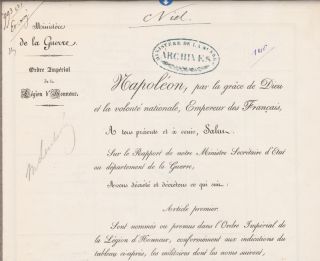 Ministère
de la Guerre
Ordre Impérial
de la
Légion d'Honneur.
Niel
MINISTÈRE DE LA GUERRE
ARCHIVES
Napoléon, par la grâce de Dieu
et la volonté nationale, Empereur des Français,
A tous présents et à venir, Salut.
Sur le Rapport de notre Ministre Secrétaire d'Etat
au département de la Guerre,
Avons décrété et décrétons ce qui suit:
Article premier.
Sont nommés ou promus dans l'Ordre Impérial de
la Légion d'Honneur, conformément aux indications du
tableau ci-après, les militaires dont les noms suivent,